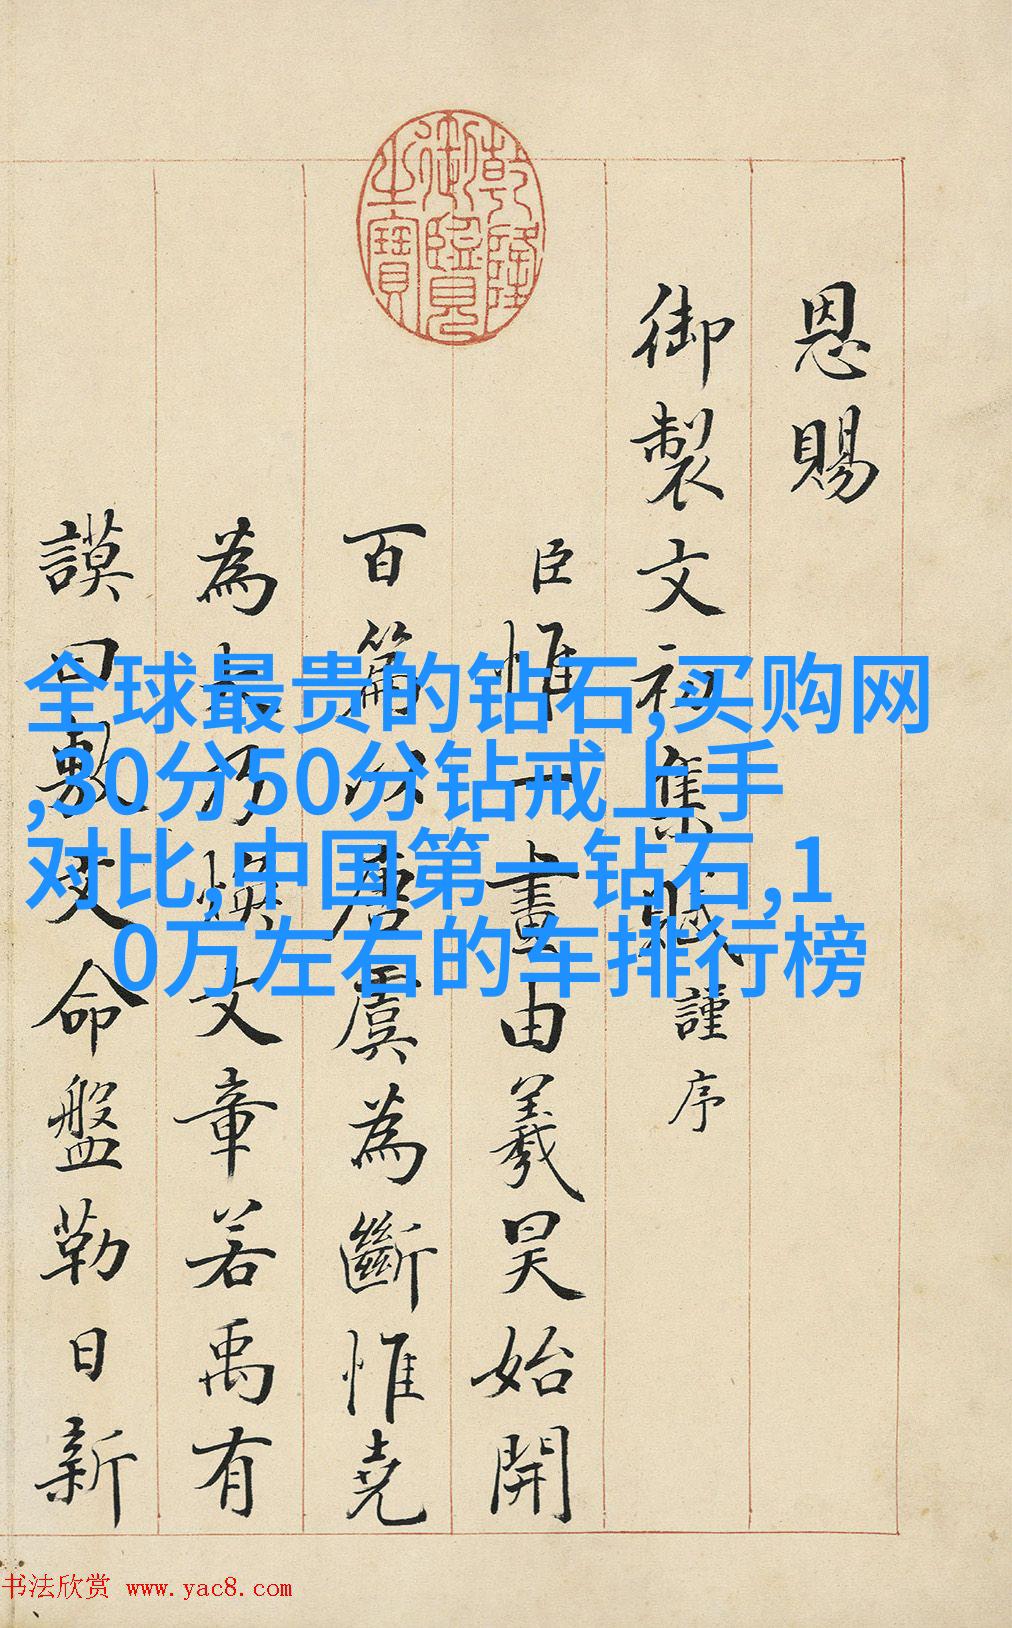 乾隆御覽之寶
恩賜
御製文初集賦謹序
臣惟一畫由羲昊始開
百篇以唐虞為斷惟堯
為大乃煥文章若禹有
謨曰敷文命盤勒日新
全球最贵的钻石,买购网
,30分50分钻戒上手
对比,中国第一钻石,1
0万左右的车排行榜
书法欣赏 www.yac8.com